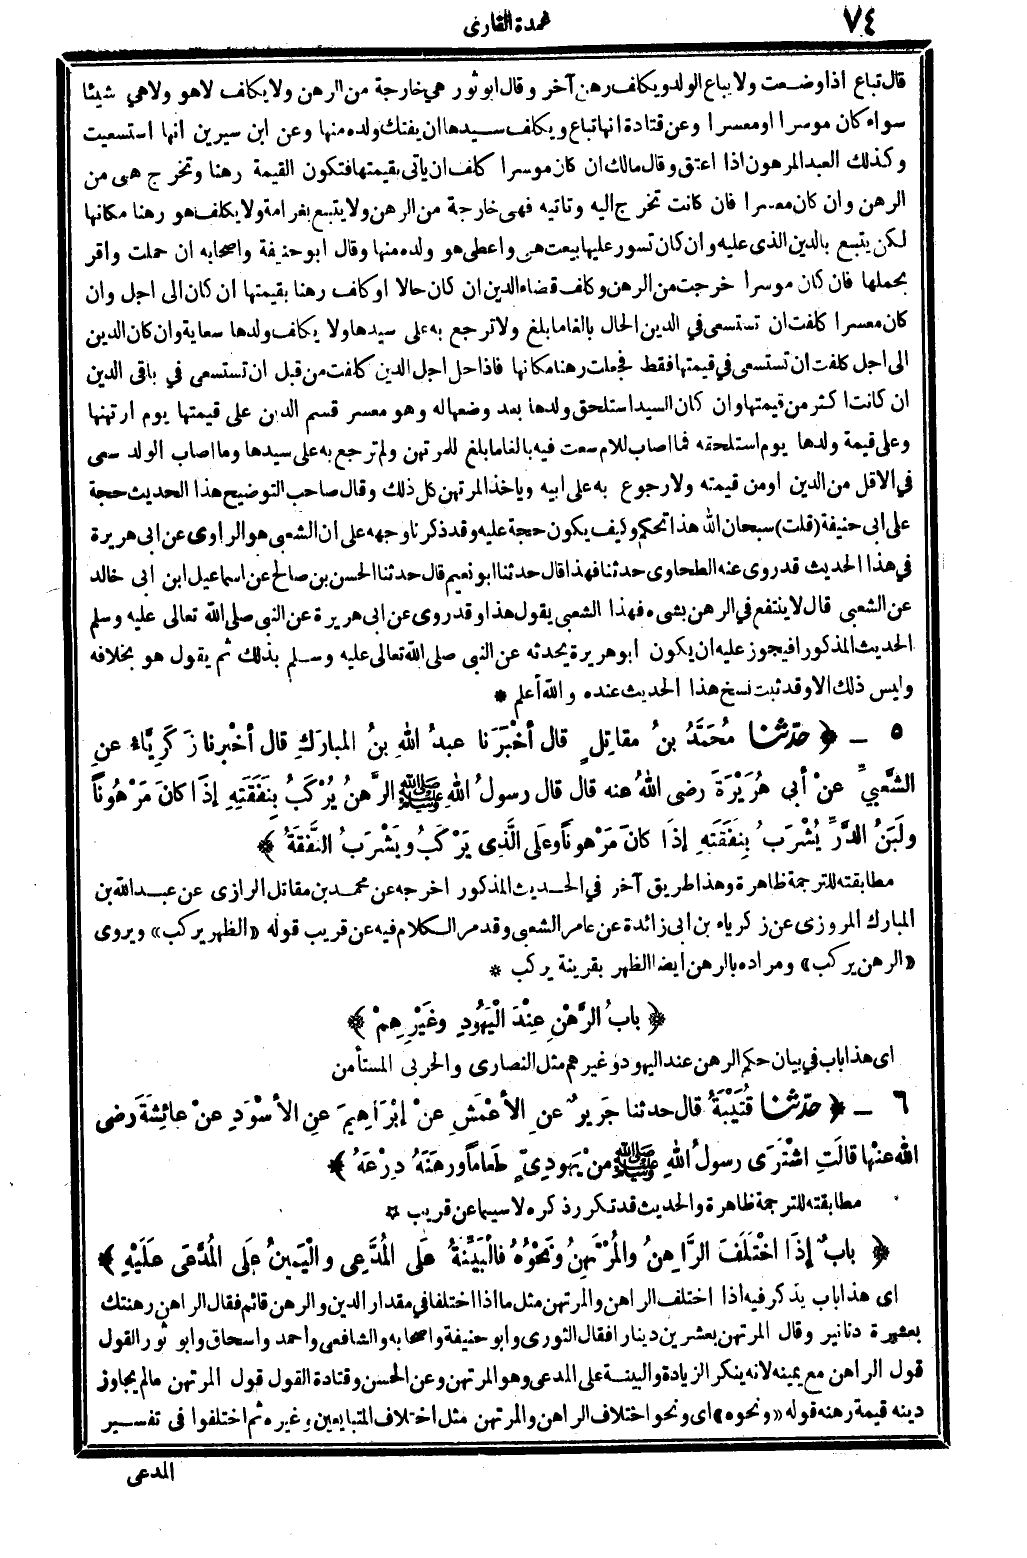 ٧٤
عمدة القارى
قال تباع اذا وضعت ولا يباع الولد ويكلف رهن آخر وقال ابو ثور هي خارجة من الرهن ولا يكلف لا هو ولا هي شيئا
سواء كان موسرا او معسرا وعن قتادة انها تباع ويكلف سيدها ان يفتك ولده منها وعن ابن سيرين انها استسعيت
وكذلك العبد المرهون اذا اعتق وقال مالك ان كان موسرا كلف ان ياتى بقيمتها فتكون القيمة رهنا وتخرج هى من
الرهن وان كان معسرا فان كانت تخرج اليه وتاتيه فهى خارجة من الرهن ولا يتبع بغرامة ولا يكلف هو رهنا مكانها
لكن يتبع بالدين الذى عليه وان كان تسور عليها بيعت هى واعطى هو ولده منها وقال ابو حنيفة واصحابه ان حملت واقر
بحملها فان كان موسرا خرجت من الرهن وكلف قضاء الدين ان كان حالا او كلف رهنا بقيمتها ان كان الى اجل وان
كان معسرا كلفت ان تستسعى في الدين الحال بالغا ما بلغ ولا ترجع به على سيدها ولا يكلف ولدها سعاية وان كان الدين
الى اجل كلفت ان تستسعى في قيمتها فقط فجعلت رهنا مكانها فاذا حل اجل الدين كلفت من قبل ان تستسعى في باقى الدين
ان كانت اكثر من قيمتها وان كان السيد استلحق ولدها بعد وضعها له وهو معسر قسم الدين على قيمتها يوم ارتهنها
وعلى قيمة ولدها يوم استلحقه فما اصاب للام سعت فيه بالغا ما بلغ للمرتهن ولم ترجع به على سيدها وما اصاب الولد سعى
في الاقل من الدين او من قيمته ولا رجوع به على ابيه وياخذ المرتهن كل ذلك وقال صاحب التوضيح هذا الحديث حجة
على ابى حنيفة (قلت) سبحان الله هذا تحكم وكيف يكون حجة عليه وقد ذكرنا وجهه على ان الشعبى هو الراوى عن ابى هريرة
في هذا الحديث قد روى عنه الطحاوى حدثنا فهذا قال حدثنا ابو نعيم قال حدثنا الحسن بن صالح عن اسماعيل ابن ابى خالد
عن الشعبى قال لا ينتفع في الرهن بشىء فهذا الشعبى يقول هذا وقد روى عن ابى هريرة عن النبى صلى الله تعالى عليه وسلم
الحديث المذكور افيجوز عليه ان يكون ابو هريرة يحدثه عن النبى صلى الله تعالى عليه وسلم بذلك ثم يقول هو بخلافه
وليس ذلك الا وقد ثبت نسخ هذا الحديث عنده والله أعلم *
٥ ـ ﴿ حَدَّثَنَا مُحَمَّدُ بنُ مقاتِلٍ قال أخْبَرَنا عبدُ اللهِ بنُ المبارَكِ قال أخْبرنا زَكَرِيَّاءُ عنِ
الشَّعْبِيِّ عنْ أبى هُرَيْرَةَ رضى اللهُ عنه قال قال رسولُ اللهِ ﷺ الرَّهنُ يُرْكَبُ بِنَفَقَتِهِ إذَا كانَ مَرْهُونًا
ولَبَنُ الدَّرِّ يُشْرَبُ بِنَفَقَتِهِ إذَا كانَ مَرْهونًا وعَلَى الَّذِى يَرْكَبُ ويَشْرَبُ النَّفَقَةُ ﴾
مطابقته للترجمة ظاهرة وهذا طريق آخر في الحديث المذكور اخرجه عن محمد بن مقاتل الرازى عن عبد الله بن
المبارك المروزى عن زكرياء بن ابى زائدة عن عامر الشعبى وقد مر الكلام فيه عن قريب قوله «الظهر يركب» ويروى
«الرهن يركب» ومراده بالرهن ايضا الظهر بقرينة يركب *
﴿ بابُ الرَّهْنِ عِنْدَ الْيَهُودِ وغَيْرِهِمْ ﴾
اى هذا باب في بيان حكم الرهن عند اليهود وغيرهم مثل النصارى والحربى المستأمن
٦ ـ ﴿ حَدَّثَنَا قُتَيْبَةُ قال حدثنا جَرِيرٌ عنِ الأعْمَشِ عنْ إبْرَاهِيمَ عنِ الأسْوَدِ عنْ عائِشَةَ رضى
الله عنْها قالَتِ اشْتَرَى رسولُ اللهِ ﷺ مِنْ يَهودِىٍّ طَعامًا ورهَنَهُ دِرْعَهُ ﴾
مطابقته للترجمة ظاهرة والحديث قد تكرر ذكره لا سيما عن قريب *
﴿ بابٌ إذَا اخْتَلَفَ الرَّاهِنُ والمُرْتَهِنُ ونَحْوُهُ فالْبَيِّنَةُ عَلَى المُدَّعِى والْيَمِينُ عَلَى المُدَّعَى عَلَيْهِ ﴾
اى هذا باب يذكر فيه اذا اختلف الراهن والمرتهن مثل ما اذا اختلفا في مقدار الدين والرهن قائم فقال الراهن رهنتك
بعشرة دنانير وقال المرتهن بعشرين دينارا فقال الثورى وابو حنيفة واصحابه والشافعى واحمد واسحاق وابو ثور القول
قول الراهن مع يمينه لانه ينكر الزيادة والبينة على المدعى وهو المرتهن وعن الحسن وقتادة القول قول المرتهن مالم يجاوز
دينه قيمة رهنه قوله «ونحوه» اى ونحو اختلاف الراهن والمرتهن مثل اختلاف المتبايعين وغيره ثم اختلفوا فى تفسير
المدعى